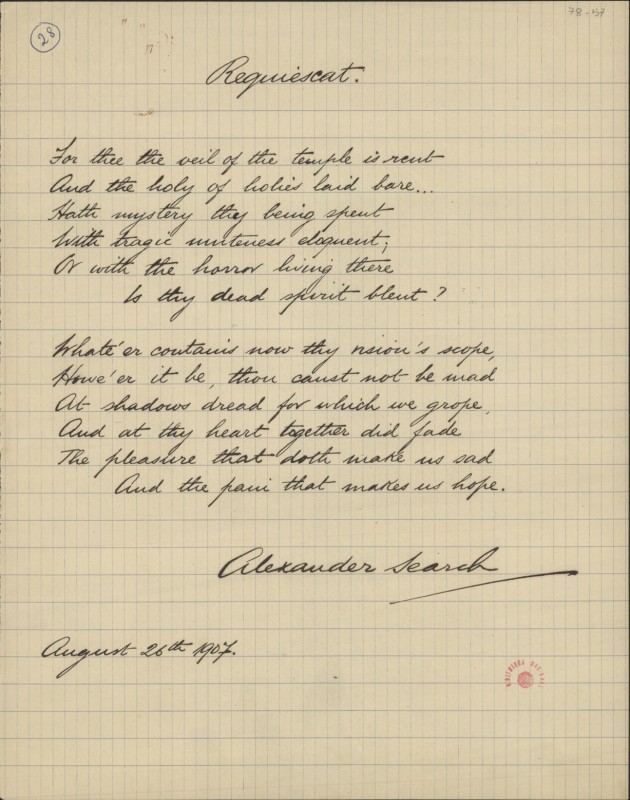 28
78-57
Requiescat.
For thee the veil of the temple is rent
And the holy of holies laid bare...
Hath mystery thy being spent
With tragic muteness eloquent;
Or with the horror living there
Is thy dead spirit blent?
Whate'er contains now thy vision's scope,
Howe'er it be, thou canst not be mad
At shadows dread for which we grope,
And at thy heart together did fade
The pleasure that doth make us sad
And the pain that makes us hope.
Alexander Search
August 26th 1907.
BIBLIOTECA NACIONAL